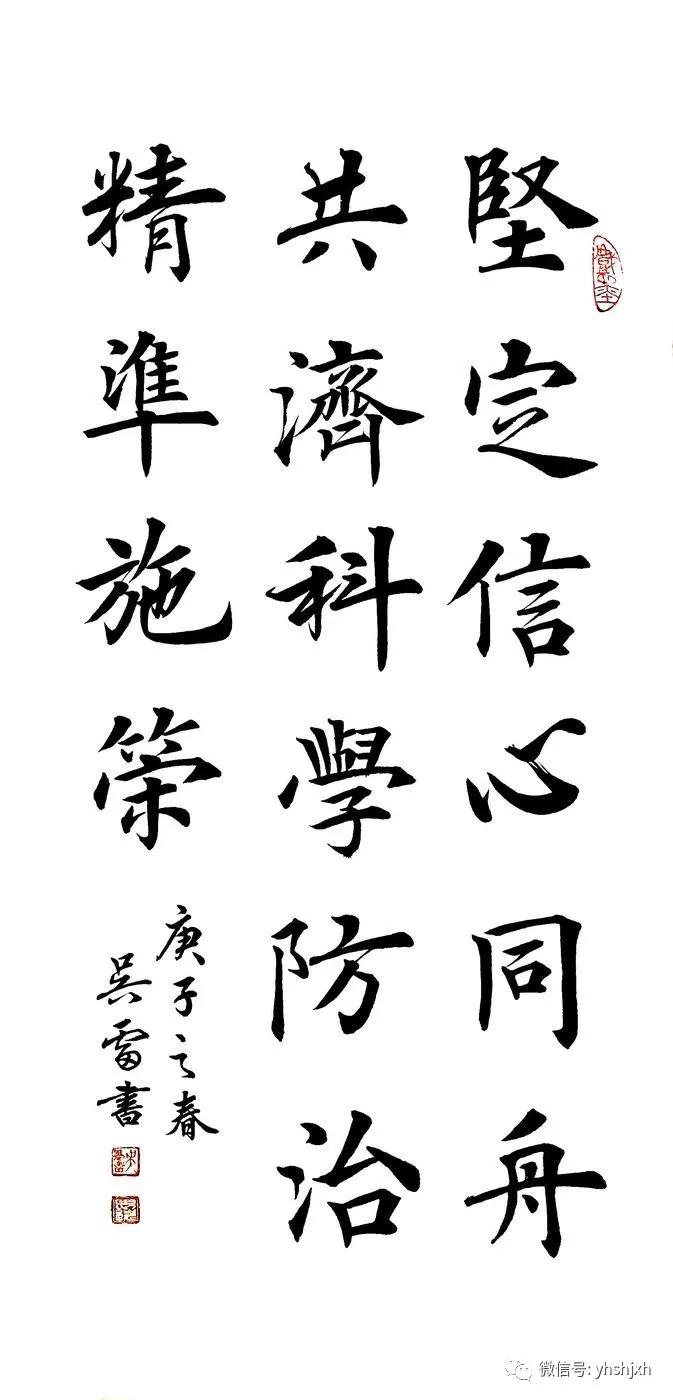 堅定信心同舟
共濟科學防治
精準施策
庚子之春
吴雷書
微信号: yhshjxh